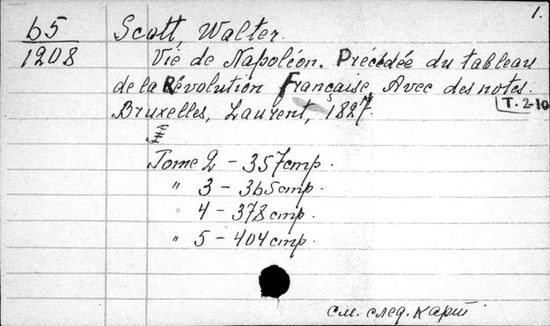 1.
b5
1208
Scott, Walter.
Vie de Napoléon. Précédée du tableau
de la Révolution Française. Avec des notes.
Bruxelles, Laurent, 1827.
T. 2-10
Tome 2 - 357 стр.
" 3 - 365 стр.
" 4 - 378 стр.
" 5 - 404 стр.
см. след. карт